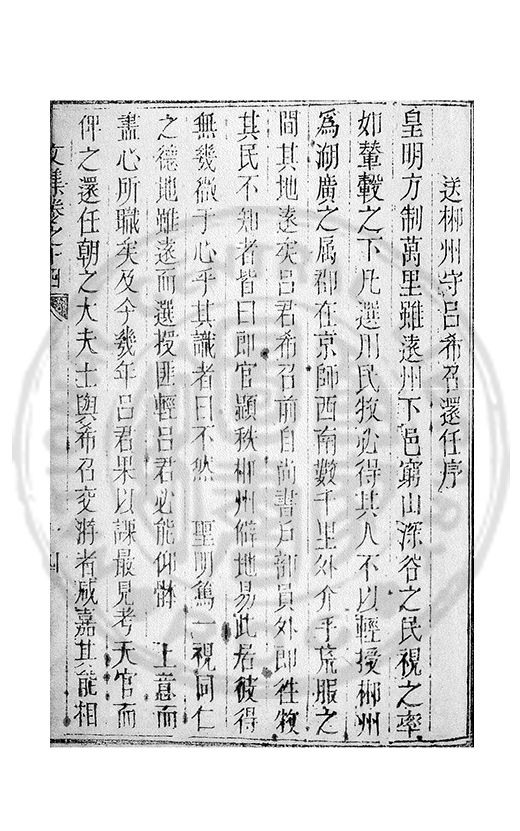 送郴州守呂希召還任序
皇明方制萬里雖遠州下邑窮山深谷之民視之率
如輦轂之下凡選用民牧必得其人不以輕授郴州
為湖廣之属郡在京師西南數千里外介乎荒服之
間其地遠矣呂君希召前自尚書戶部員外郎徃牧
其民不知者皆曰郎官顯秩郴州僻地易此君彼得
無幾微于心乎其識者曰不然 聖明篤一視同仁
之德地雖遠而選授匪輕呂君必能仰骵 上意而
盡心所職矣及今幾年呂君果以課最見考天官而
俾之還任朝之大夫士與希召交游者咸嘉其能相
文集卷之十四